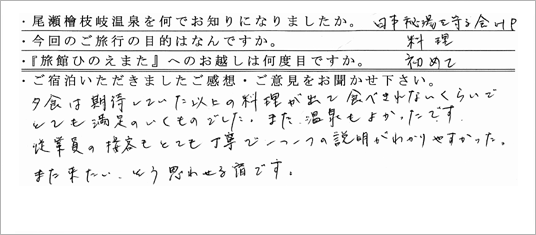 ・尾瀬檜枝岐温泉を何でお知りになりましたか。 日本秘湯を守る会HP
・今回のご旅行の目的はなんですか。 料理
・『旅館ひのえまた』へのお越しは何度目ですか。 初めて
・ご宿泊いただきましたご感想・ご意見をお聞かせ下さい。
夕食は期待していた以上の料理が出て食べきれないくらいで
とても満足のいくものでした。また、温泉もよかったです。
従業員の接客もとても丁寧で一つ一つの説明がわかりやすかった。
また来たい、そう思わせる宿です。